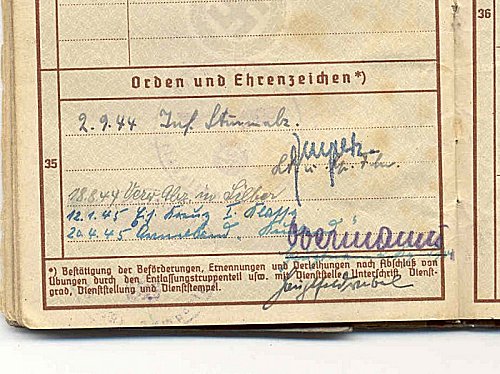 36
Orden und Ehrenzeichen*)
2.9.44 Inf. Sturmabz.
35
18.8.44 Verw. Abz. in Silber
12.1.45 E. Kreuz I. Klasse
20.4.45 Armelband „Kurland“
*) Bestätigung der Beförderungen, Ernennungen und Verleihungen nach Abschluß von
Übungen durch den Entlassungstruppenteil usw. mit Dienststelle, Unterschrift, Dienst-
grad, Dienststellung und Dienststempel.
Hauptfeldwebel